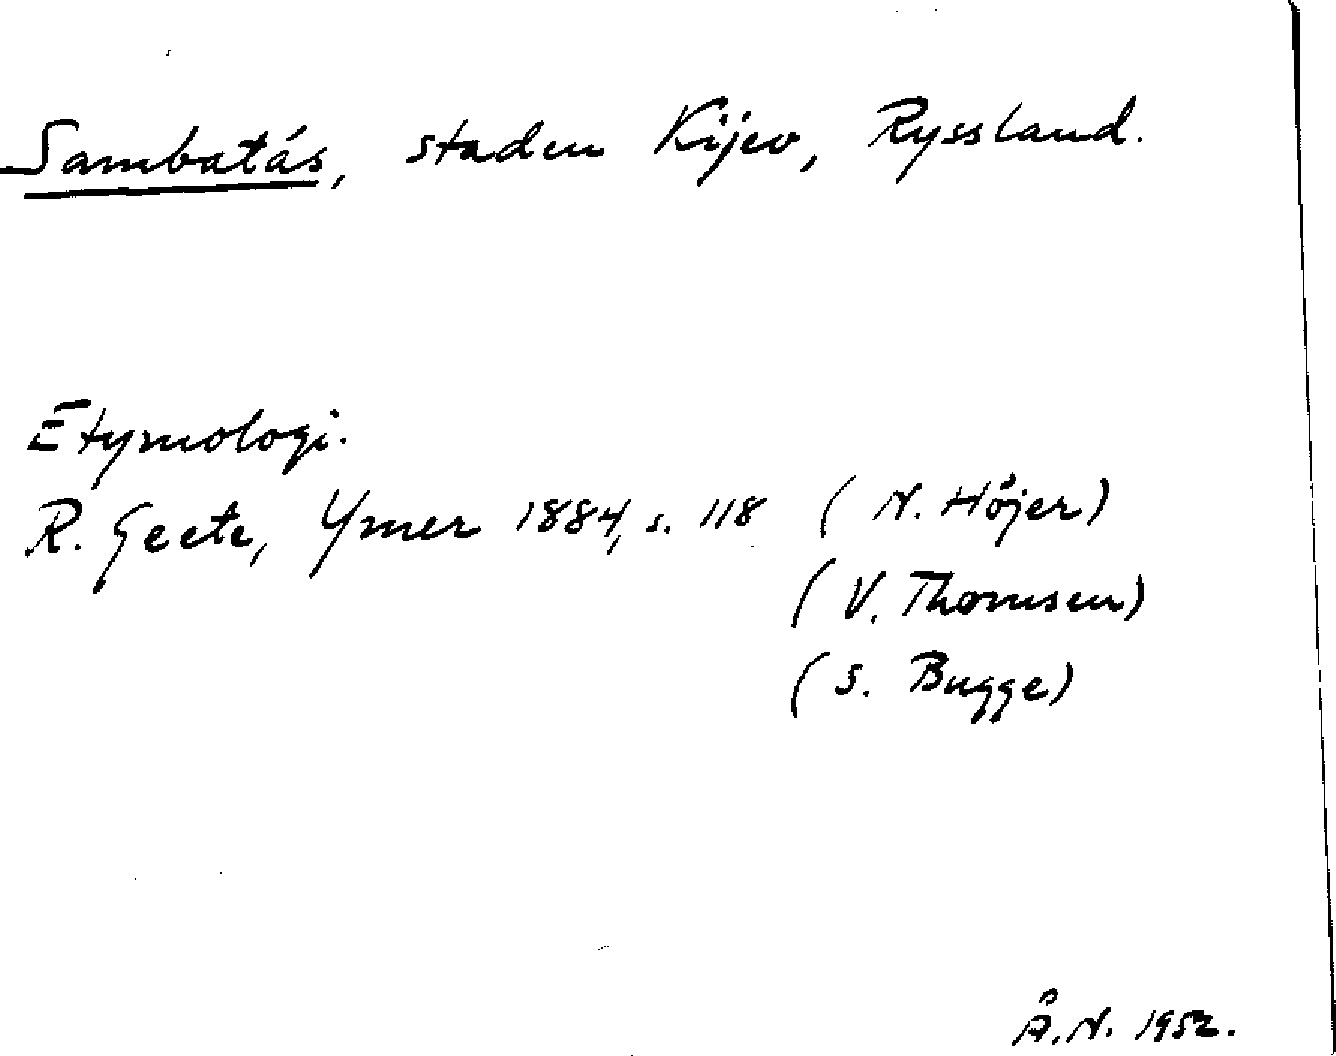 Sambatás, staden Kijev, Ryssland.
Etymologi.
R. Geete, Ymer 1884, s. 118 (N. Höjer)
(V. Thomsen)
(S. Bugge)
Å.N. 1952.